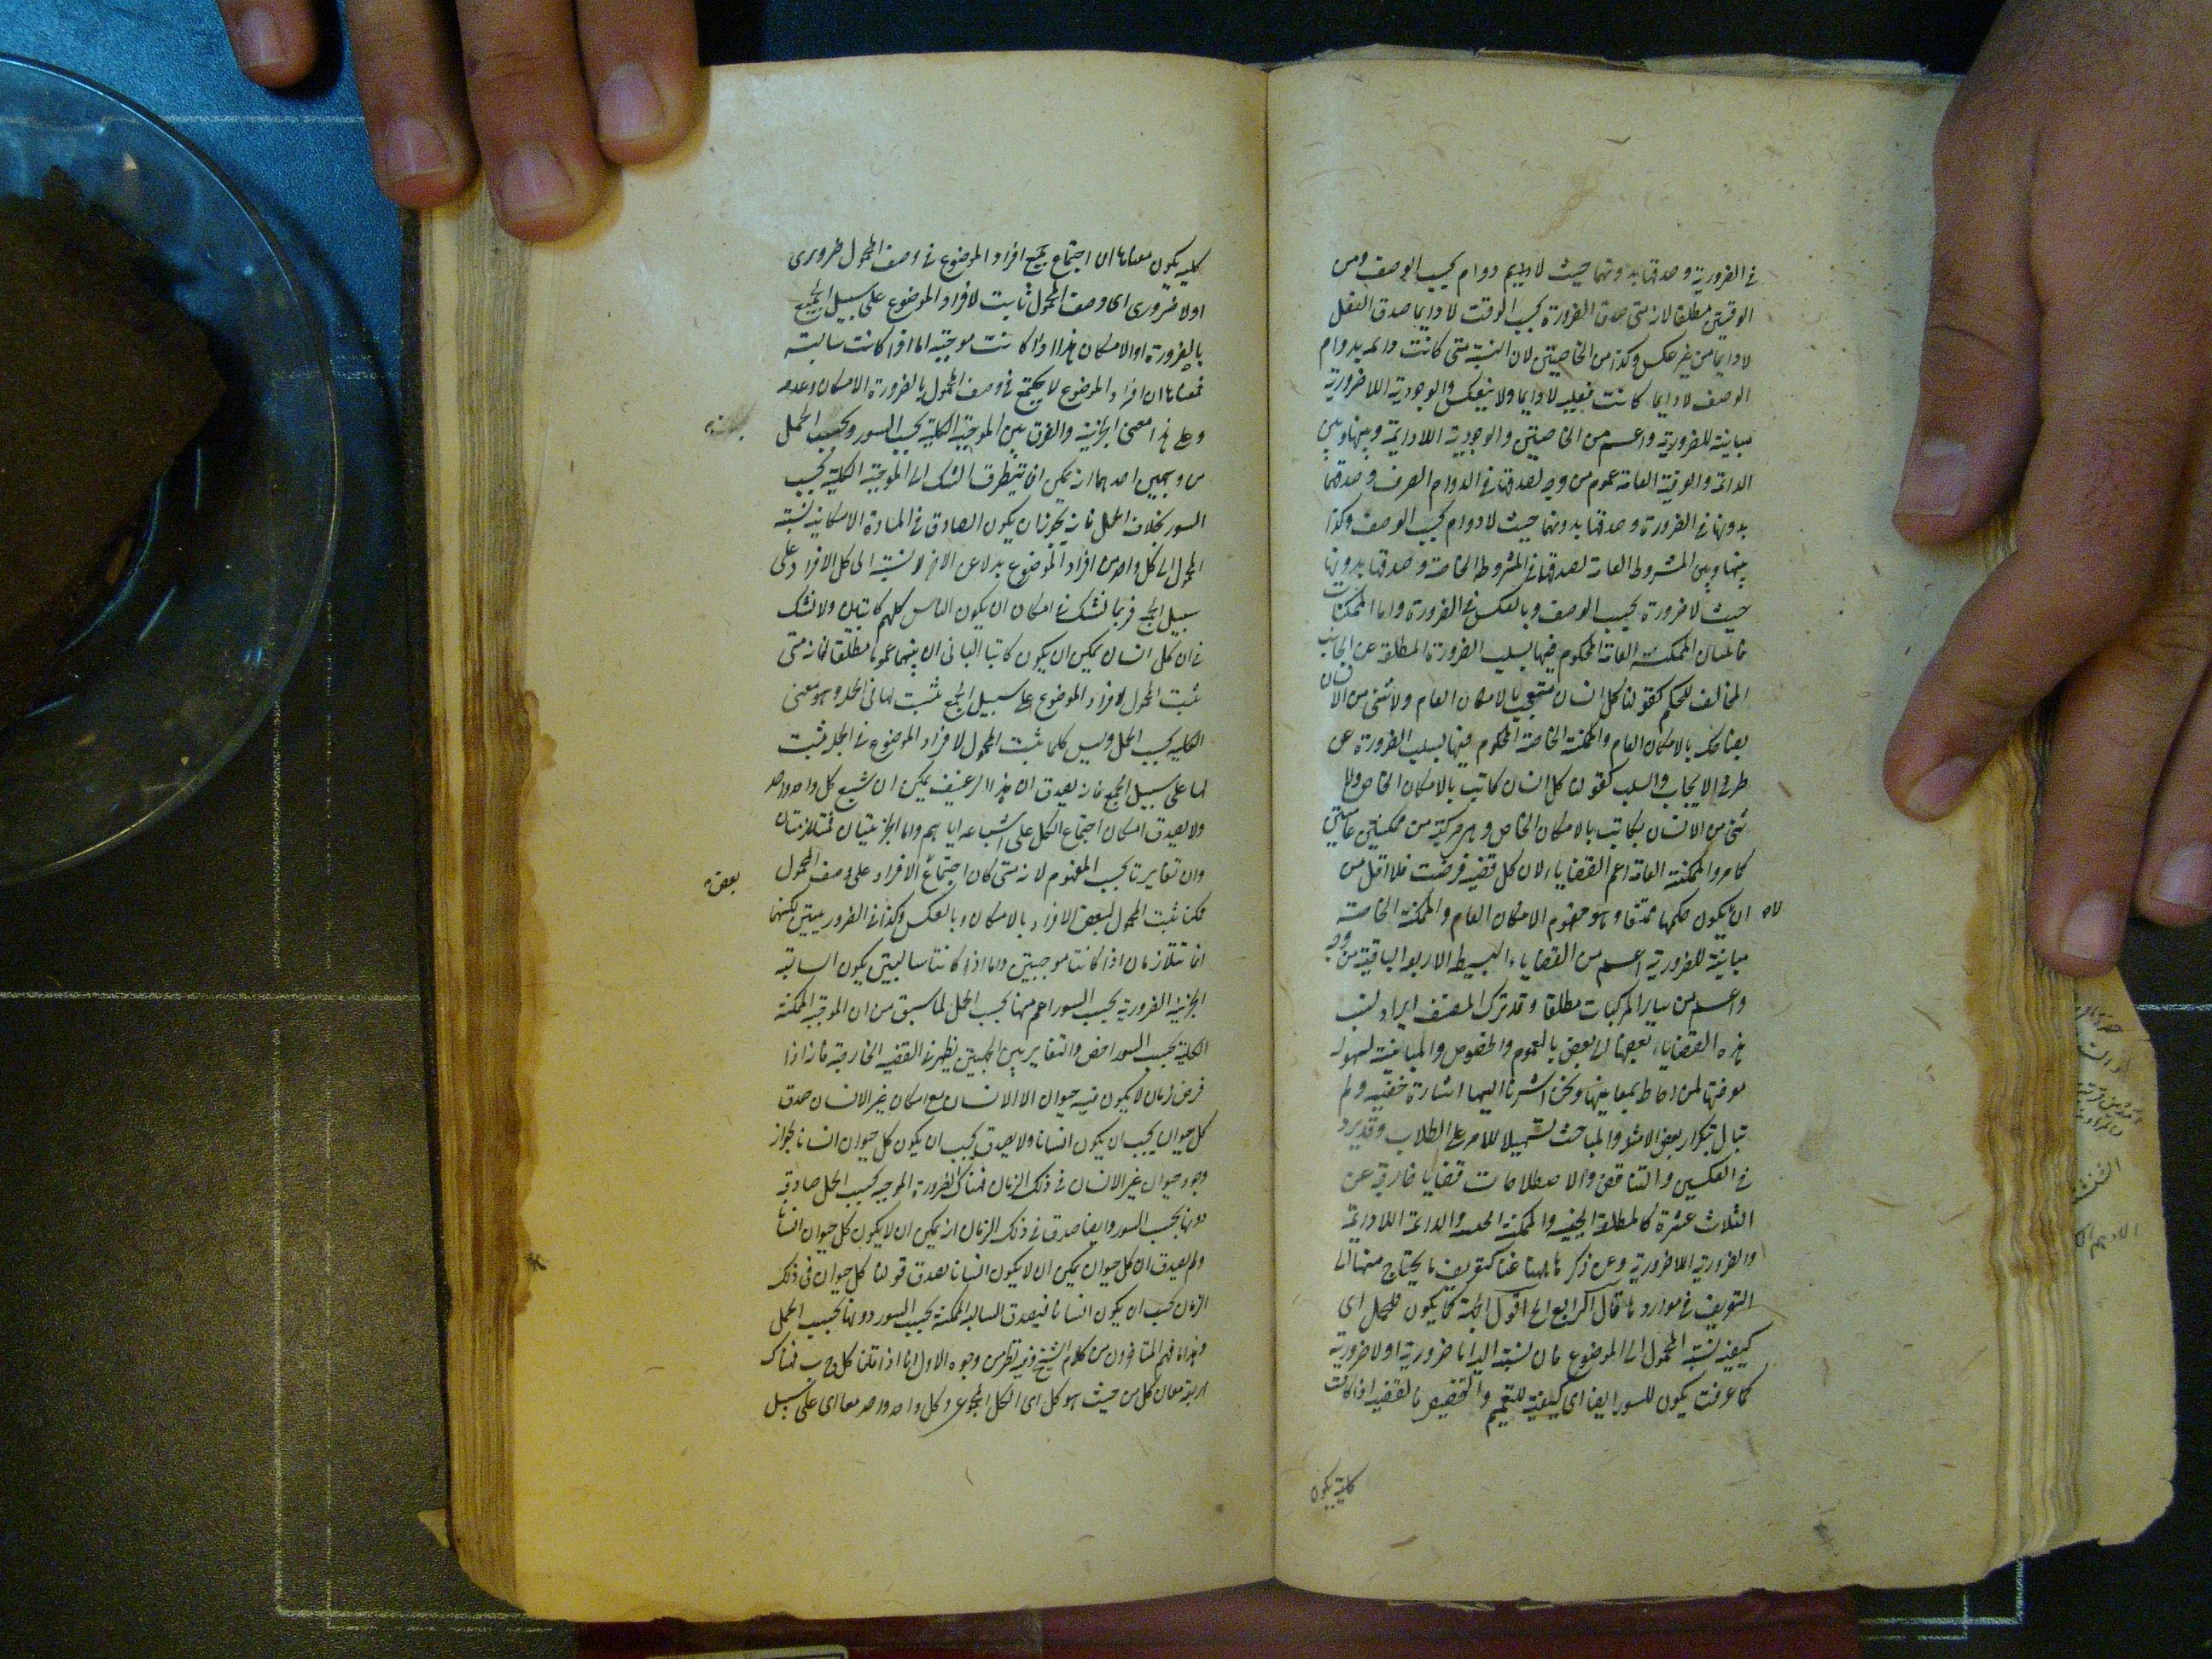 في الضرورية وصدقها بدونها حيث لا دوام بحسب الوصف ومن
الوقتيتين مطلقا لانه متى صدق الضرورة بحسب الوقت لا دايما صدق الفعل
لا دايما من غير عكس وكذا من الخاصيتين لان النسبة متى كانت دايمة بدوام
الوصف لا دايما كانت فعلية لا دايما ولا ينعكس والوجودية اللاضرورية
مباينة للضرورية واعم من الخاصيتين والوجودية اللادايمة وبينها وبين
الدايمة والعرفية العامة عموم من وجه لصدقها في الدوام الصرف وصدقهما
بدونها في الضرورة وصدقها بدونهما حيث لا دوام بحسب الوصف وكذا
بينها وبين المشروطة العامة لصدقهما في المشروطة الخاصة وصدقها بدونها
حيث لا ضرورة بحسب الوصف وبالعكس في الضرورة واما الممكنات
الممكنة العامة المحكوم فيها بسلب الضرورة المطلقة عن الجانب
المخالف للحكم كقولنا كل انسان متعجب بالامكان العام ولا شئ من الانسان
بضاحك بالامكان العام والممكنة الخاصة المحكوم فيها بسلب الضرورة عن
طرفي الايجاب والسلب كقولنا كل انسان كاتب بالامكان الخاص ولا
شئ من الانسان بكاتب بالامكان الخاص وهي مركبة من ممكنتين عامتين
كما مر والممكنة العامة اعم القضايا لان كل قضية فرضت فلا اقل من
ان لا يكون حكمها ممتنعا وهو مفهوم الامكان العام والممكنة الخاصة
مباينة للضرورية اعم من القضايا البسيطة الاربعة الباقية من وجه
واعم من ساير المركبات مطلقا وقد ترك المصنف ايراد نسب
هذه القضايا بعضها الى بعض بالعموم والخصوص والمباينة لسهولة
معرفتها لمن احاط بمعانيها ونحن اشرنا اليها اشارة خفية ولم
نبال بتكرار بعض الامثلة والمباحث تسهيلا للامر على الطلاب وقد يرد
في العكسين والتناقض والاصطلاحات قضايا خارجة عن
الثلاث عشرة كالمطلقة الحينية والممكنة الحينية والدايمة اللادايمة
والضرورية اللاضرورية وعن ذكر ما يحتاج منها الى
التعريف في موارده قال الرابع الخ اقول الجهة كما يكون للحمل اى
كيفية نسبة المحمول الى الموضوع فان نسبة اليه اما ضرورية او لا ضرورية
كما عرفت يكون للسور ايضا اى كيفية للتعميم والتخصيص فالقضية اذا كانت
كلية يكون
كلية يكون معناها ان اجتماع جميع افراد الموضوع في وصف المحمول ضرورى
او لا ضرورى اى وصف المحمول ثابت لافراد الموضوع على سبيل الجمع
بالضرورة او الامكان هذا اذا كانت موجبة اما اذا كانت سالبة
فمعناها ان افراد الموضوع لا يجتمع في وصف المحمول بالضرورة الامكان وعدمه
وعلى هذا معنى الجزئية والفرق بين الموجبة الكلية بحسب السور وبحسب الحمل
من وجهين احدهما انه يمكن ان يتطرق الشك الى الموجبة الكلية بحسب
السور بخلاف الحمل فانه يجوز ان يكون الصادق في المادة الامكانية نسبة
المحمول الى كل واحد من افراد الموضوع بدلا عن الاخر لا نسبته الى كل الافراد على
سبيل الجمع فربما نشك في امكان ان يكون الناس كلهم كاتبين ولا نشك
في ان كل انسان يمكن ان يكون كاتبا الثاني ان بينهما عموما مطلقا فانه متى
ثبت المحمول لافراد الموضوع على سبيل الجمع ثبت لها في الجملة وهو معنى
الكلية بحسب الحمل وليس كلما ثبت المحمول لافراد الموضوع في الجملة ثبت
لها على سبيل الجمع فانه يصدق ان هذا الرغيف يمكن ان يشبع كل واحد واحد
ولا يصدق امكان اجتماع الكل على اشباعه اياهم واما الجزئيتان فمتلازمتان
وان تغايرتا بحسب المفهوم لانه متى كان اجتماع الافراد على وصف المحمول
بعض
ممكنا ثبت المحمول لبعض الافراد بالامكان وبالعكس وكذا في الضروريتين لكنهما
انما تتلازمان اذا كانتا موجبتين واما اذا كانتا سالبتين يكون السالبة
الجزئية الضرورية بحسب السور اعم منها بحسب الحمل لما سبق من ان الموجبة الممكنة
الكلية بحسب السور اخص والتغاير بين الجهتين يظهر في القضية الخارجية فانه اذا
فرض زمان لا يكون فيه حيوان الا الانسان مع امكان غير الانسان صدق
كل حيوان يجب ان يكون انسانا ولا يصدق يجب ان يكون كل حيوان انسانا لجواز
وجود حيوان غير الانسان في ذلك الزمان فهناك الضرورة الموجبة بحسب الحمل صادقة
دونها بحسب السور وايضا صدق في ذلك الزمان انه يمكن ان لا يكون كل حيوان انسانا
ولم يصدق ان كل حيوان يمكن ان لا يكون انسانا لصدق قولنا كل حيوان في ذلك
الزمان يجب ان يكون انسانا فيصدق السالبة الممكنة بحسب السور دونها بحسب الحمل
هذا ما فهم المتاخرون من كلام الشيخ وفيه نظر من وجوه الاول انا اذا قلنا كل ج ب فهناك
اربعة معان كل من حيث هو كل اى الكل المجموع وكل واحد واحد معا اى على سبيل